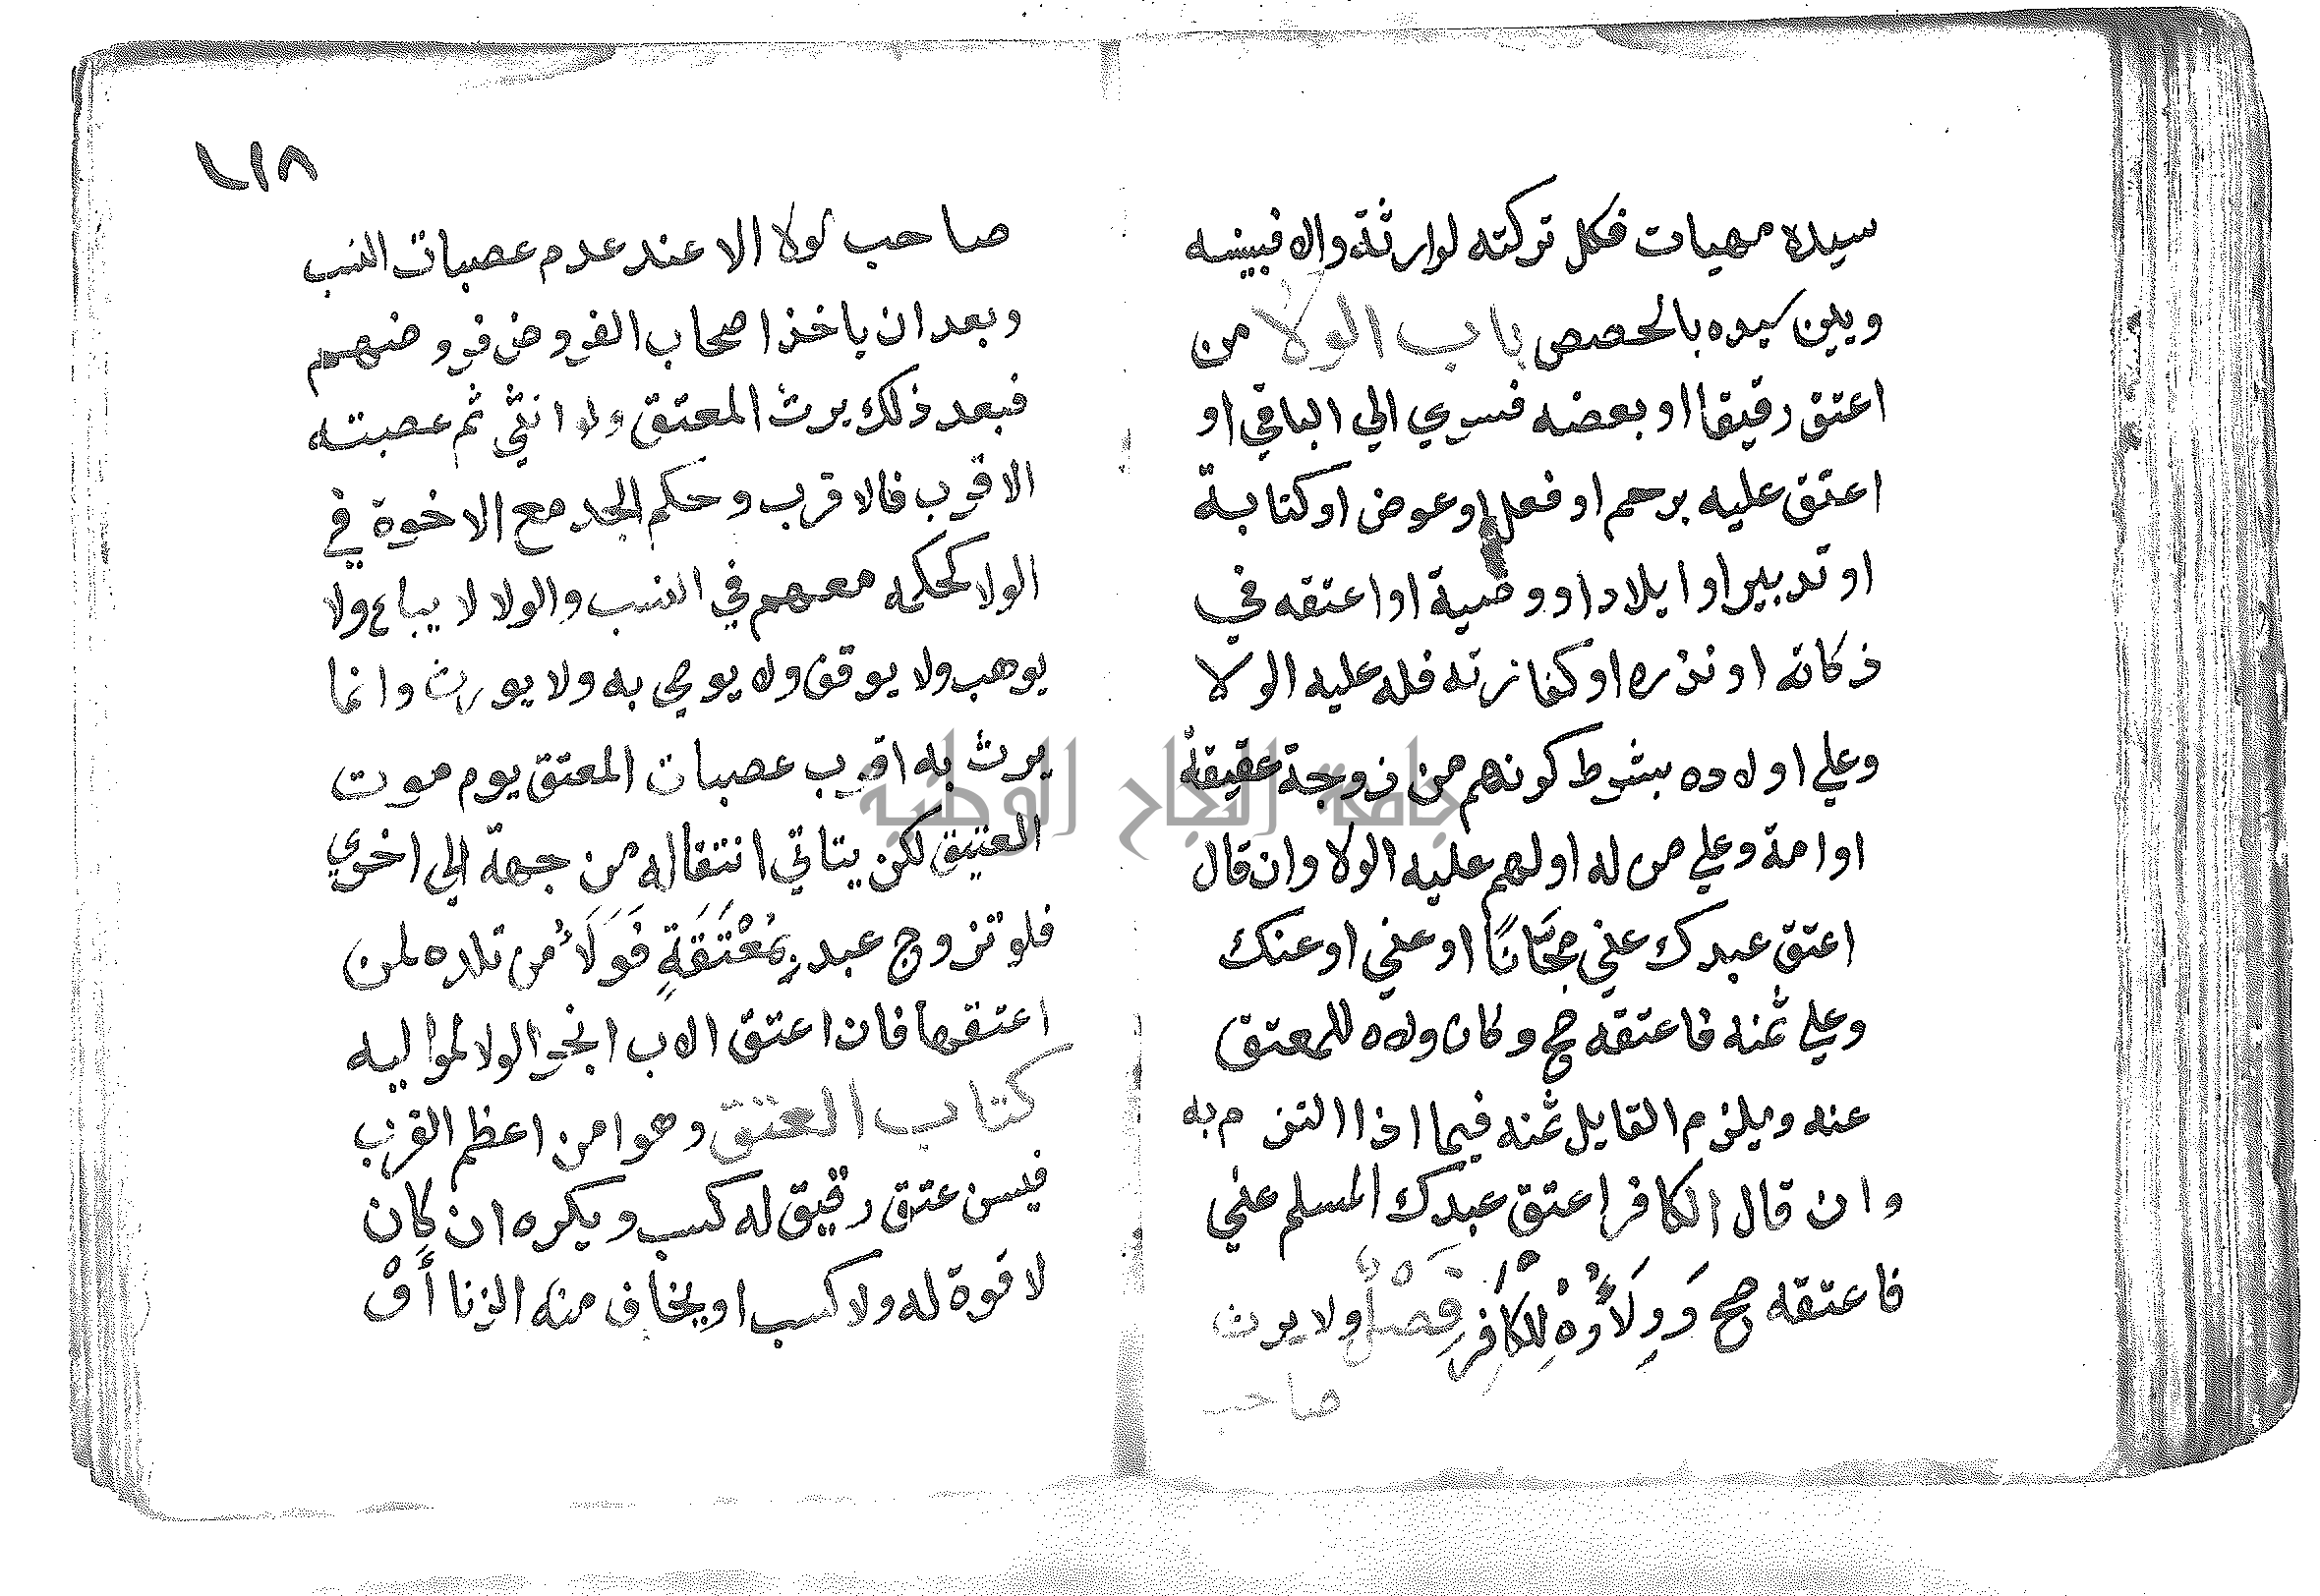 سيده مهيات فكل تركته لوارثة والا فبينه
وبين سيده بالحصص باب الولا من
اعتق رقيقا او بعضه فسري الي الباقي او
اعتق عليه برحم او فعل او عوض او كتابة
او تدبير او ايلاد او وصية او اعتقه في
زكاته او نذره او كفارته فله عليه الولا
وعلي اولاده بشرط كونهم من زوجة عتيقة
او امة وعلي من له او لهم عليه الولا وان قال
اعتق عبدك عني مجَّانًا او عني او عنك
وعلي ثمنه فاعتقه صح وكان ولاه للمعتق
عنه ويلزم القايل ثمنه فيما اذا التزم به
وان قال الكافر اعتق عبدك المسلم عني
فاعتقه صح وَوِلَاؤُهُ لِلكَافِرِ فَصْلٌ ولا يرث
صاحب
١١٨
صاحب لولا الا عند عدم عصبات النسب
وبعد ان ياخذ اصحاب الفروض فروضهم
فبعد ذلك يرث المعتق ولو انثي ثم عصبته
الاقرب فالاقرب وحكم الجد مع الاخوة في
الولا كحكمه معهم في النسب والولا لا يباع ولا
يوهب ولا يوقف ولا يوصي به ولا يورث وانما
يرث به اقرب عصبات المعتق يوم موت
العتيق لكن يتاتي انتقاله من جهة الي اخري
فلو تزوج عبد بِمُعْتَقَةٍ فَوَلَاُ من تلده لمن
اعتقها فان اعتق الاب انجر الولا لمواليه
كتاب العتق وهو من اعظم القرب
فيسن عتق رقيق له كسب ويكره ان كان
لا قوة له ولا كسب او يخاف منه الزنا أَوْ
جامعة النجاح الوطنية